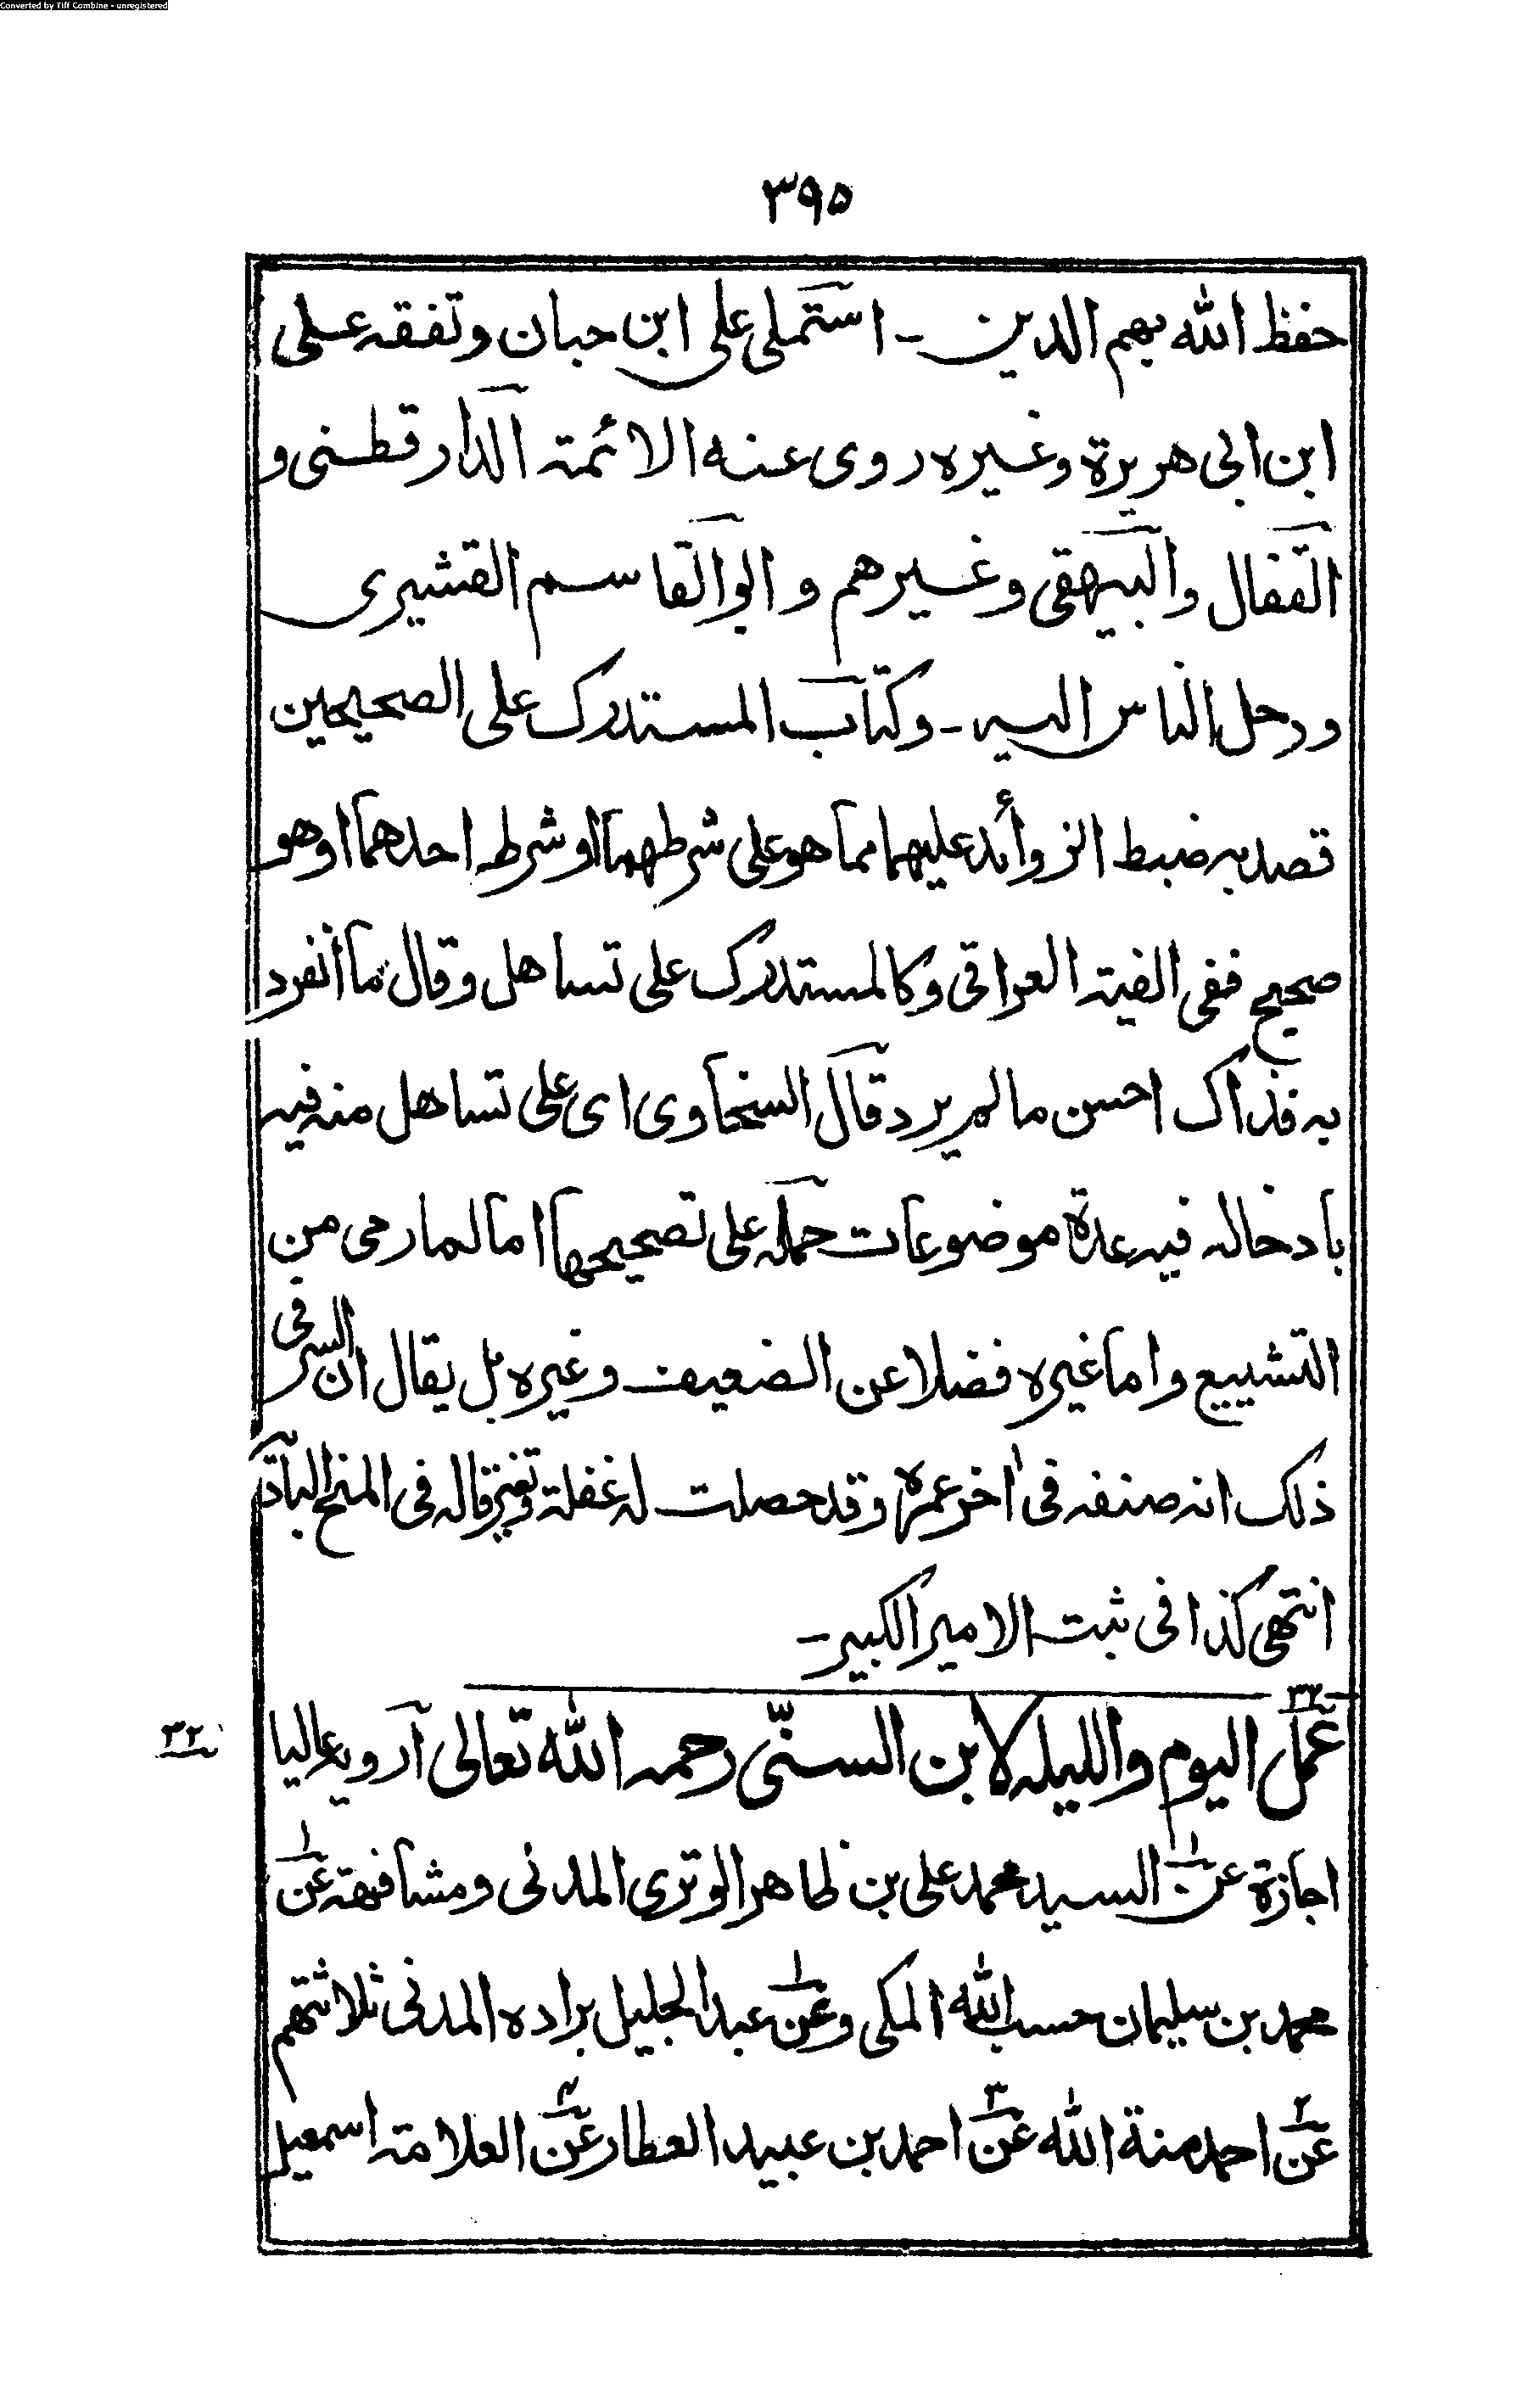 Converted by Tiff Combine - unregistered
٣٩٥
حفظ الله بهم الدين ـ استملى على ابن حبان وتفقه على
ابن ابى هريرة وغيره روى عنه الائمة الدارقطنى و
القفال والبيهقى وغيرهم وابو القاسم القشيرى
ورحل الناس اليه ـ وكتاب المستدرك على الصحيحين
قصد به ضبط الزوائد عليهما مما هو على شرطهما او شرط احدهما او هو
صحيح ففى الفية العراقى وكالمستدرك على تساهل وقال ما انفرد
به فذاك احسن مالم يرد قال السخاوى اى على تساهل منه فيه
بادخاله فيه عدة موضوعات حمله على تصحيحها اما لما رمى من
التشييع واما غيره فضلا عن الضعيف وغيره بل يقال ان السر فى
ذلك انه صنفه فى اٰخر عمره وقد حصلت له غفلة وتغير قاله فى المنح البادية
انتهى كذا فى ثبت الامير الكبير ـ
٣٢ عمل اليوم والليله لابن السنّى رحمه الله تعالى ارويه عاليا
٣٢
اجازة عن ١ السيد محمد على بن ظاهر الوترى المدنى ومشافهة عن ١
محمد بن سليمان حسب الله المكى وعن ١ عبد الجليل براده المدنى ثلاثتهم
عن ٢ احمد منة الله عن ٣ احمد بن عبيد العطار عن ٤ العلامة اسمعيل